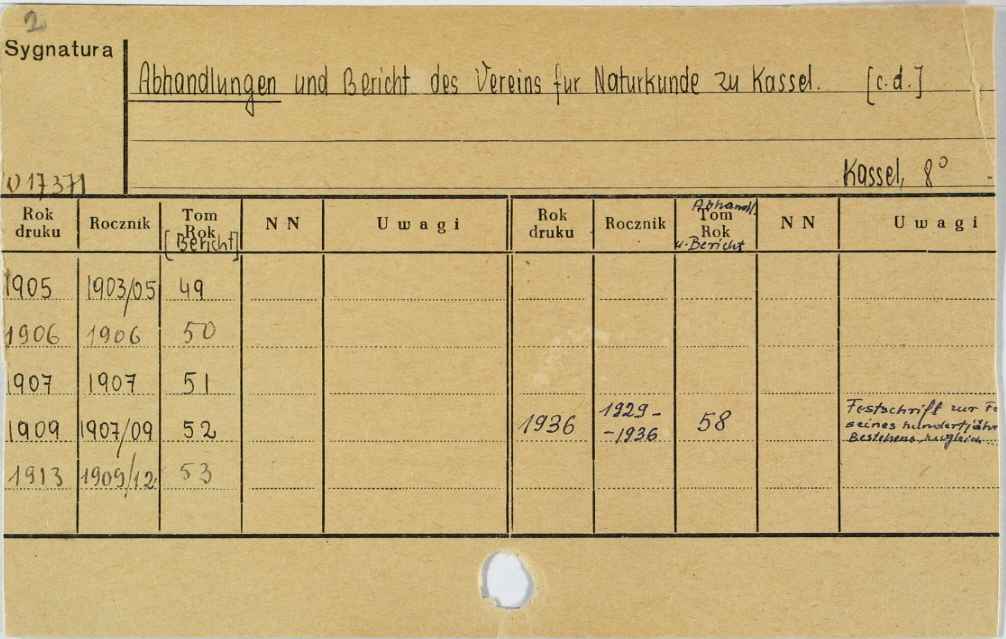 2
Sygnatura
Abhandlungen und Bericht des Vereins fur Naturkunde zu Kassel. [c.d.]
Kassel, 8°
17371
Rok druku Rocznik Tom Rok [Bericht] NN Uwagi Rok druku Rocznik Abhandl. Tom Rok u. Bericht NN Uwagi
1905 1903/05 49
1906 1906 50
1907 1907 51
1909 1907/09 52 1936 1929--1936 58 Festschrift zur seines hundertjähr Bestehens zugleich
1913 1909/12 53